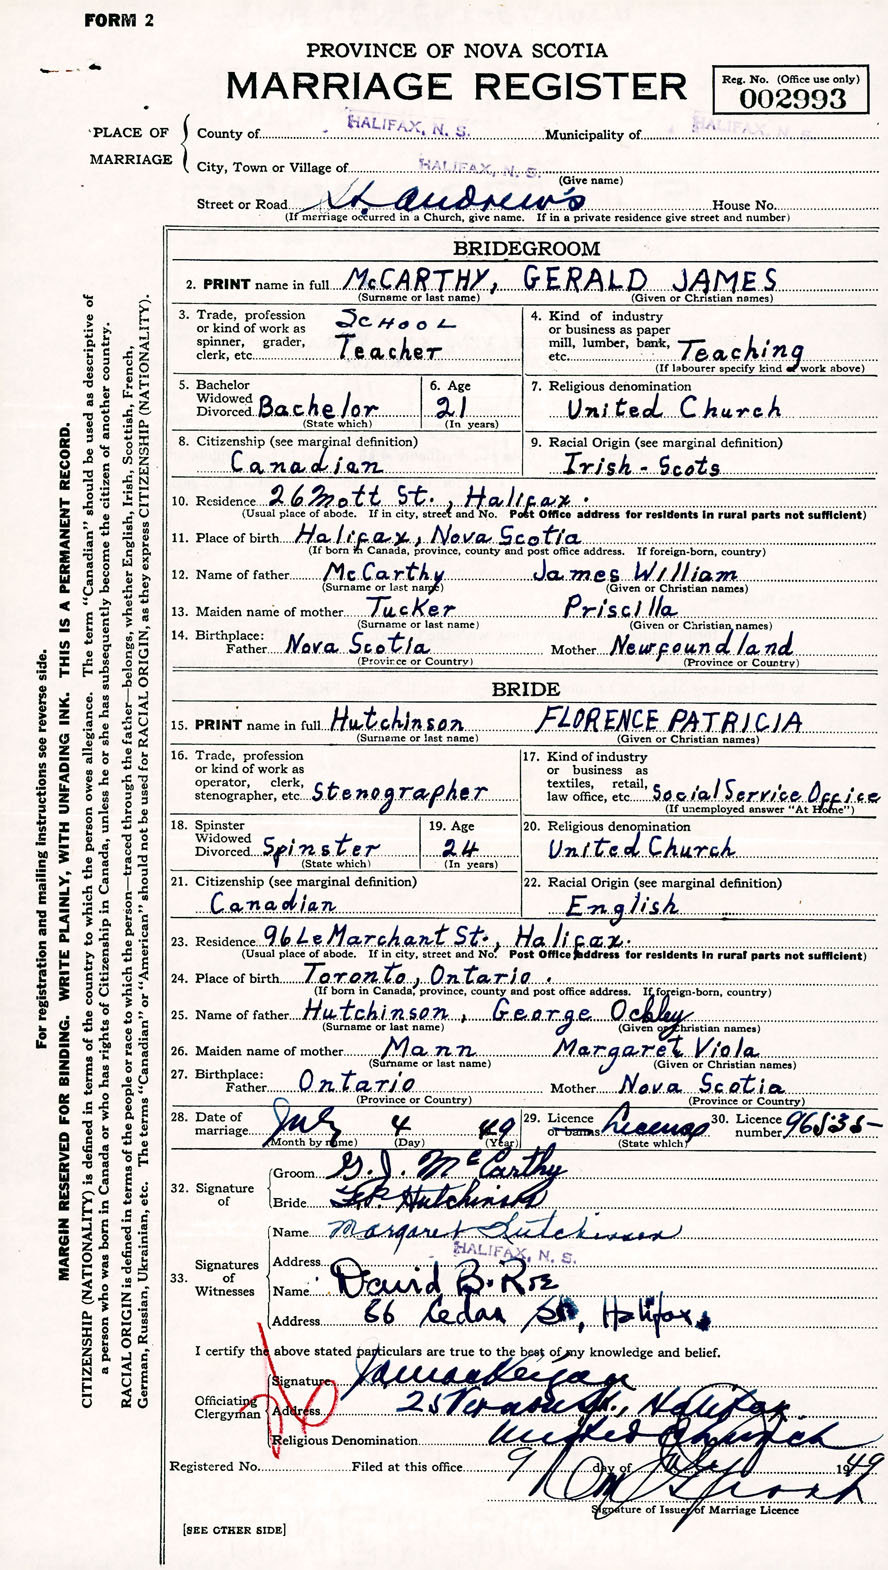 FORM 2
PROVINCE OF NOVA SCOTIA
MARRIAGE REGISTER
Reg. No. (Office use only)
002993
PLACE OF MARRIAGE
County of HALIFAX, N. S. Municipality of HALIFAX, N. S.
City, Town or Village of HALIFAX, N. S.
(Give name)
Street or Road St. Andrew's House No.
(If marriage occurred in a Church, give name. If in a private residence give street and number)
BRIDEGROOM
2. PRINT name in full McCARTHY, GERALD JAMES
(Surname or last name) (Given or Christian names)
3. Trade, profession or kind of work as spinner, grader, clerk, etc. SCHOOL Teacher
4. Kind of industry or business as paper mill, lumber, bank, etc. Teaching
(If labourer specify kind of work above)
5. Bachelor Widowed Divorced Bachelor
(State which)
6. Age 21
(In years)
7. Religious denomination
United Church
8. Citizenship (see marginal definition)
Canadian
9. Racial Origin (see marginal definition)
Irish - Scots
10. Residence 26 Mott St., Halifax.
(Usual place of abode. If in city, street and No. Post Office address for residents in rural parts not sufficient)
11. Place of birth Halifax, Nova Scotia
(If born in Canada, province, county and post office address. If foreign-born, country)
12. Name of father McCarthy James William
(Surname or last name) (Given or Christian names)
13. Maiden name of mother Tucker Priscilla
(Surname or last name) (Given or Christian names)
14. Birthplace:
Father Nova Scotia Mother Newfoundland
(Province or Country) (Province or Country)
BRIDE
15. PRINT name in full Hutchinson FLORENCE PATRICIA
(Surname or last name) (Given or Christian names)
16. Trade, profession or kind of work as operator, clerk, stenographer, etc. Stenographer
17. Kind of industry or business as textiles, retail, law office, etc. Social Service Office
(If unemployed answer "At Home")
18. Spinster Widowed Divorced Spinster
(State which)
19. Age 24
(In years)
20. Religious denomination
United Church
21. Citizenship (see marginal definition)
Canadian
22. Racial Origin (see marginal definition)
English
23. Residence 96 Le Marchant St., Halifax.
(Usual place of abode. If in city, street and No. Post Office address for residents in rural parts not sufficient)
24. Place of birth Toronto, Ontario.
(If born in Canada, province, county and post office address. If foreign-born, country)
25. Name of father Hutchinson, George Ockley
(Surname or last name) (Given or Christian names)
26. Maiden name of mother Mann Margaret Viola
(Surname or last name) (Given or Christian names)
27. Birthplace:
Father Ontario Mother Nova Scotia
(Province or Country) (Province or Country)
28. Date of marriage July 4 49
(Month by name) (Day) (Year)
29. Licence or banns License
(State which)
30. Licence number 96535
32. Signature of
Groom G. J. McCarthy
Bride F. P. Hutchinson
33. Signatures of Witnesses
Name Margaret Hutchinson
Address HALIFAX, N. S.
Name David B. Roe
Address 66 Cedar St, Halifax
I certify the above stated particulars are true to the best of my knowledge and belief.
Officiating Clergyman
Signature
Address 25 St., Halifax
Religious Denomination United Church
Registered No. Filed at this office 9 day of 1949
Signature of Issuer of Marriage Licence
[SEE OTHER SIDE]
For registration and mailing instructions see reverse side.
MARGIN RESERVED FOR BINDING. WRITE PLAINLY, WITH UNFADING INK. THIS IS A PERMANENT RECORD.
CITIZENSHIP (NATIONALITY) is defined in terms of the country to which the person owes allegiance. The term "Canadian" should be used as descriptive of
a person who was born in Canada or who has rights of Citizenship in Canada, unless he or she has subsequently become the citizen of another country.
RACIAL ORIGIN is defined in terms of the people or race to which the person—traced through the father—belongs, whether English, Irish, Scottish, French,
German, Russian, Ukrainian, etc. The terms "Canadian" or "American" should not be used for RACIAL ORIGIN, as they express CITIZENSHIP (NATIONALITY).